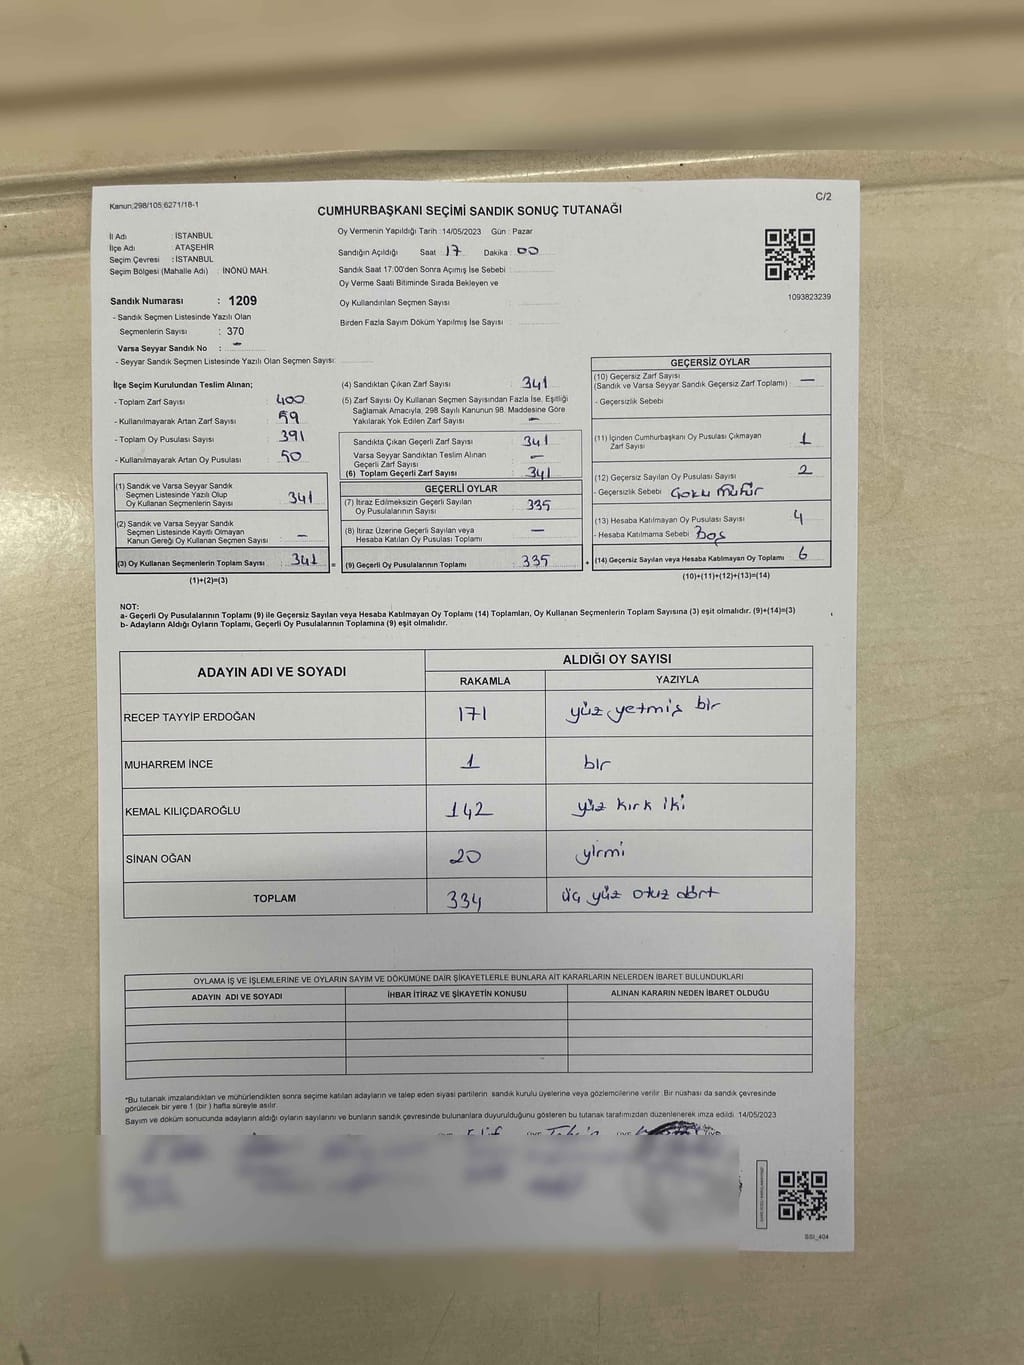 Kanun;298/105;6271/18-1
C/2
CUMHURBAŞKANI SEÇİMİ SANDIK SONUÇ TUTANAĞI
İl Adı : İSTANBUL
İlçe Adı : ATAŞEHİR
Seçim Çevresi : İSTANBUL
Seçim Bölgesi (Mahalle Adı) : İNÖNÜ MAH.
Oy Vermenin Yapıldığı Tarih :14/05/2023 Gün : Pazar
Sandığın Açıldığı Saat 17 Dakika : 00
Sandık Saat 17:00'den Sonra Açımış İse Sebebi :
Oy Verme Saati Bitiminde Sırada Bekleyen ve
Oy Kullandırılan Seçmen Sayısı :
Birden Fazla Sayım Döküm Yapılmış İse Sayısı :
1093823239
Sandık Numarası : 1209
- Sandık Seçmen Listesinde Yazılı Olan
Seçmenlerin Sayısı : 370
Varsa Seyyar Sandık No : -
- Seyyar Sandık Seçmen Listesinde Yazılı Olan Seçmen Sayısı:
İlçe Seçim Kurulundan Teslim Alınan;
- Toplam Zarf Sayısı : 400
- Kullanılmayarak Artan Zarf Sayısı : 59
- Toplam Oy Pusulası Sayısı : 391
- Kullanılmayarak Artan Oy Pusulası : 50
(1) Sandık ve Varsa Seyyar Sandık
Seçmen Listesinde Yazılı Olup
Oy Kullanan Seçmenlerin Sayısı : 341
(2) Sandık ve Varsa Seyyar Sandık
Seçmen Listesinde Kayıtlı Olmayan
Kanun Gereği Oy Kullanan Seçmen Sayısı : -
(3) Oy Kullanan Seçmenlerin Toplam Sayısı : 341
(1)+(2)=(3)
(4) Sandıktan Çıkan Zarf Sayısı : 341
(5) Zarf Sayısı Oy Kullanan Seçmen Sayısından Fazla İse, Eşitliği
Sağlamak Amacıyla, 298 Sayılı Kanunun 98. Maddesine Göre
Yakılarak Yok Edilen Zarf Sayısı : -
Sandıkta Çıkan Geçerli Zarf Sayısı : 341
Varsa Seyyar Sandıktan Teslim Alınan
Geçerli Zarf Sayısı : -
(6) Toplam Geçerli Zarf Sayısı : 341
GEÇERLİ OYLAR
(7) İtiraz Edilmeksizin Geçerli Sayılan
Oy Pusulalarının Sayısı : 335
(8) İtiraz Üzerine Geçerli Sayılan veya
Hesaba Katılan Oy Pusulası Toplamı : -
= (9) Geçerli Oy Pusulalarının Toplamı : 335 +
GEÇERSİZ OYLAR
(10) Geçersiz Zarf Sayısı
(Sandık ve Varsa Seyyar Sandık Geçersiz Zarf Toplamı) : -
- Geçersizlik Sebebi
(11) İçinden Cumhurbaşkanı Oy Pusulası Çıkmayan
Zarf Sayısı : 1
(12) Geçersiz Sayılan Oy Pusulası Sayısı : 2
- Geçersizlik Sebebi Çoklu Mühür
(13) Hesaba Katılmayan Oy Pusulası Sayısı : 4
- Hesaba Katılmama Sebebi Boş
(14) Geçersiz Sayılan veya Hesaba Katılmayan Oy Toplamı : 6
(10)+(11)+(12)+(13)=(14)
NOT:
a- Geçerli Oy Pusulalarının Toplamı (9) ile Geçersiz Sayılan veya Hesaba Katılmayan Oy Toplamı (14) Toplamları, Oy Kullanan Seçmenlerin Toplam Sayısına (3) eşit olmalıdır. (9)+(14)=(3)
b- Adayların Aldığı Oyların Toplamı, Geçerli Oy Pusulalarının Toplamına (9) eşit olmalıdır.
ADAYIN ADI VE SOYADI ALDIĞI OY SAYISI
RAKAMLA YAZIYLA
RECEP TAYYİP ERDOĞAN 171 yüz yetmiş bir
MUHARREM İNCE 1 bir
KEMAL KILIÇDAROĞLU 142 yüz kırk iki
SİNAN OĞAN 20 yirmi
TOPLAM 334 üç yüz otuz dört
OYLAMA İŞ VE İŞLEMLERİNE VE OYLARIN SAYIM VE DÖKÜMÜNE DAİR ŞİKAYETLERLE BUNLARA AİT KARARLARIN NELERDEN İBARET BULUNDUKLARI
ADAYIN ADI VE SOYADI İHBAR İTİRAZ VE ŞİKAYETİN KONUSU ALINAN KARARIN NEDEN İBARET OLDUĞU
*Bu tutanak imzalandıktan ve mühürlendikten sonra seçime katılan adayların ve talep eden siyasi partilerin sandık kurulu üyelerine veya gözlemcilerine verilir. Bir nüshası da sandık çevresinde
görülecek bir yere 1 (bir ) hafta süreyle asılır.
Sayım ve döküm sonucunda adayların aldığı oyların sayılarını ve bunların sandık çevresinde bulunanlara duyurulduğunu gösteren bu tutanak tarafımızdan düzenlenerek imza edildi. 14/05/2023
Elif
SSI_404